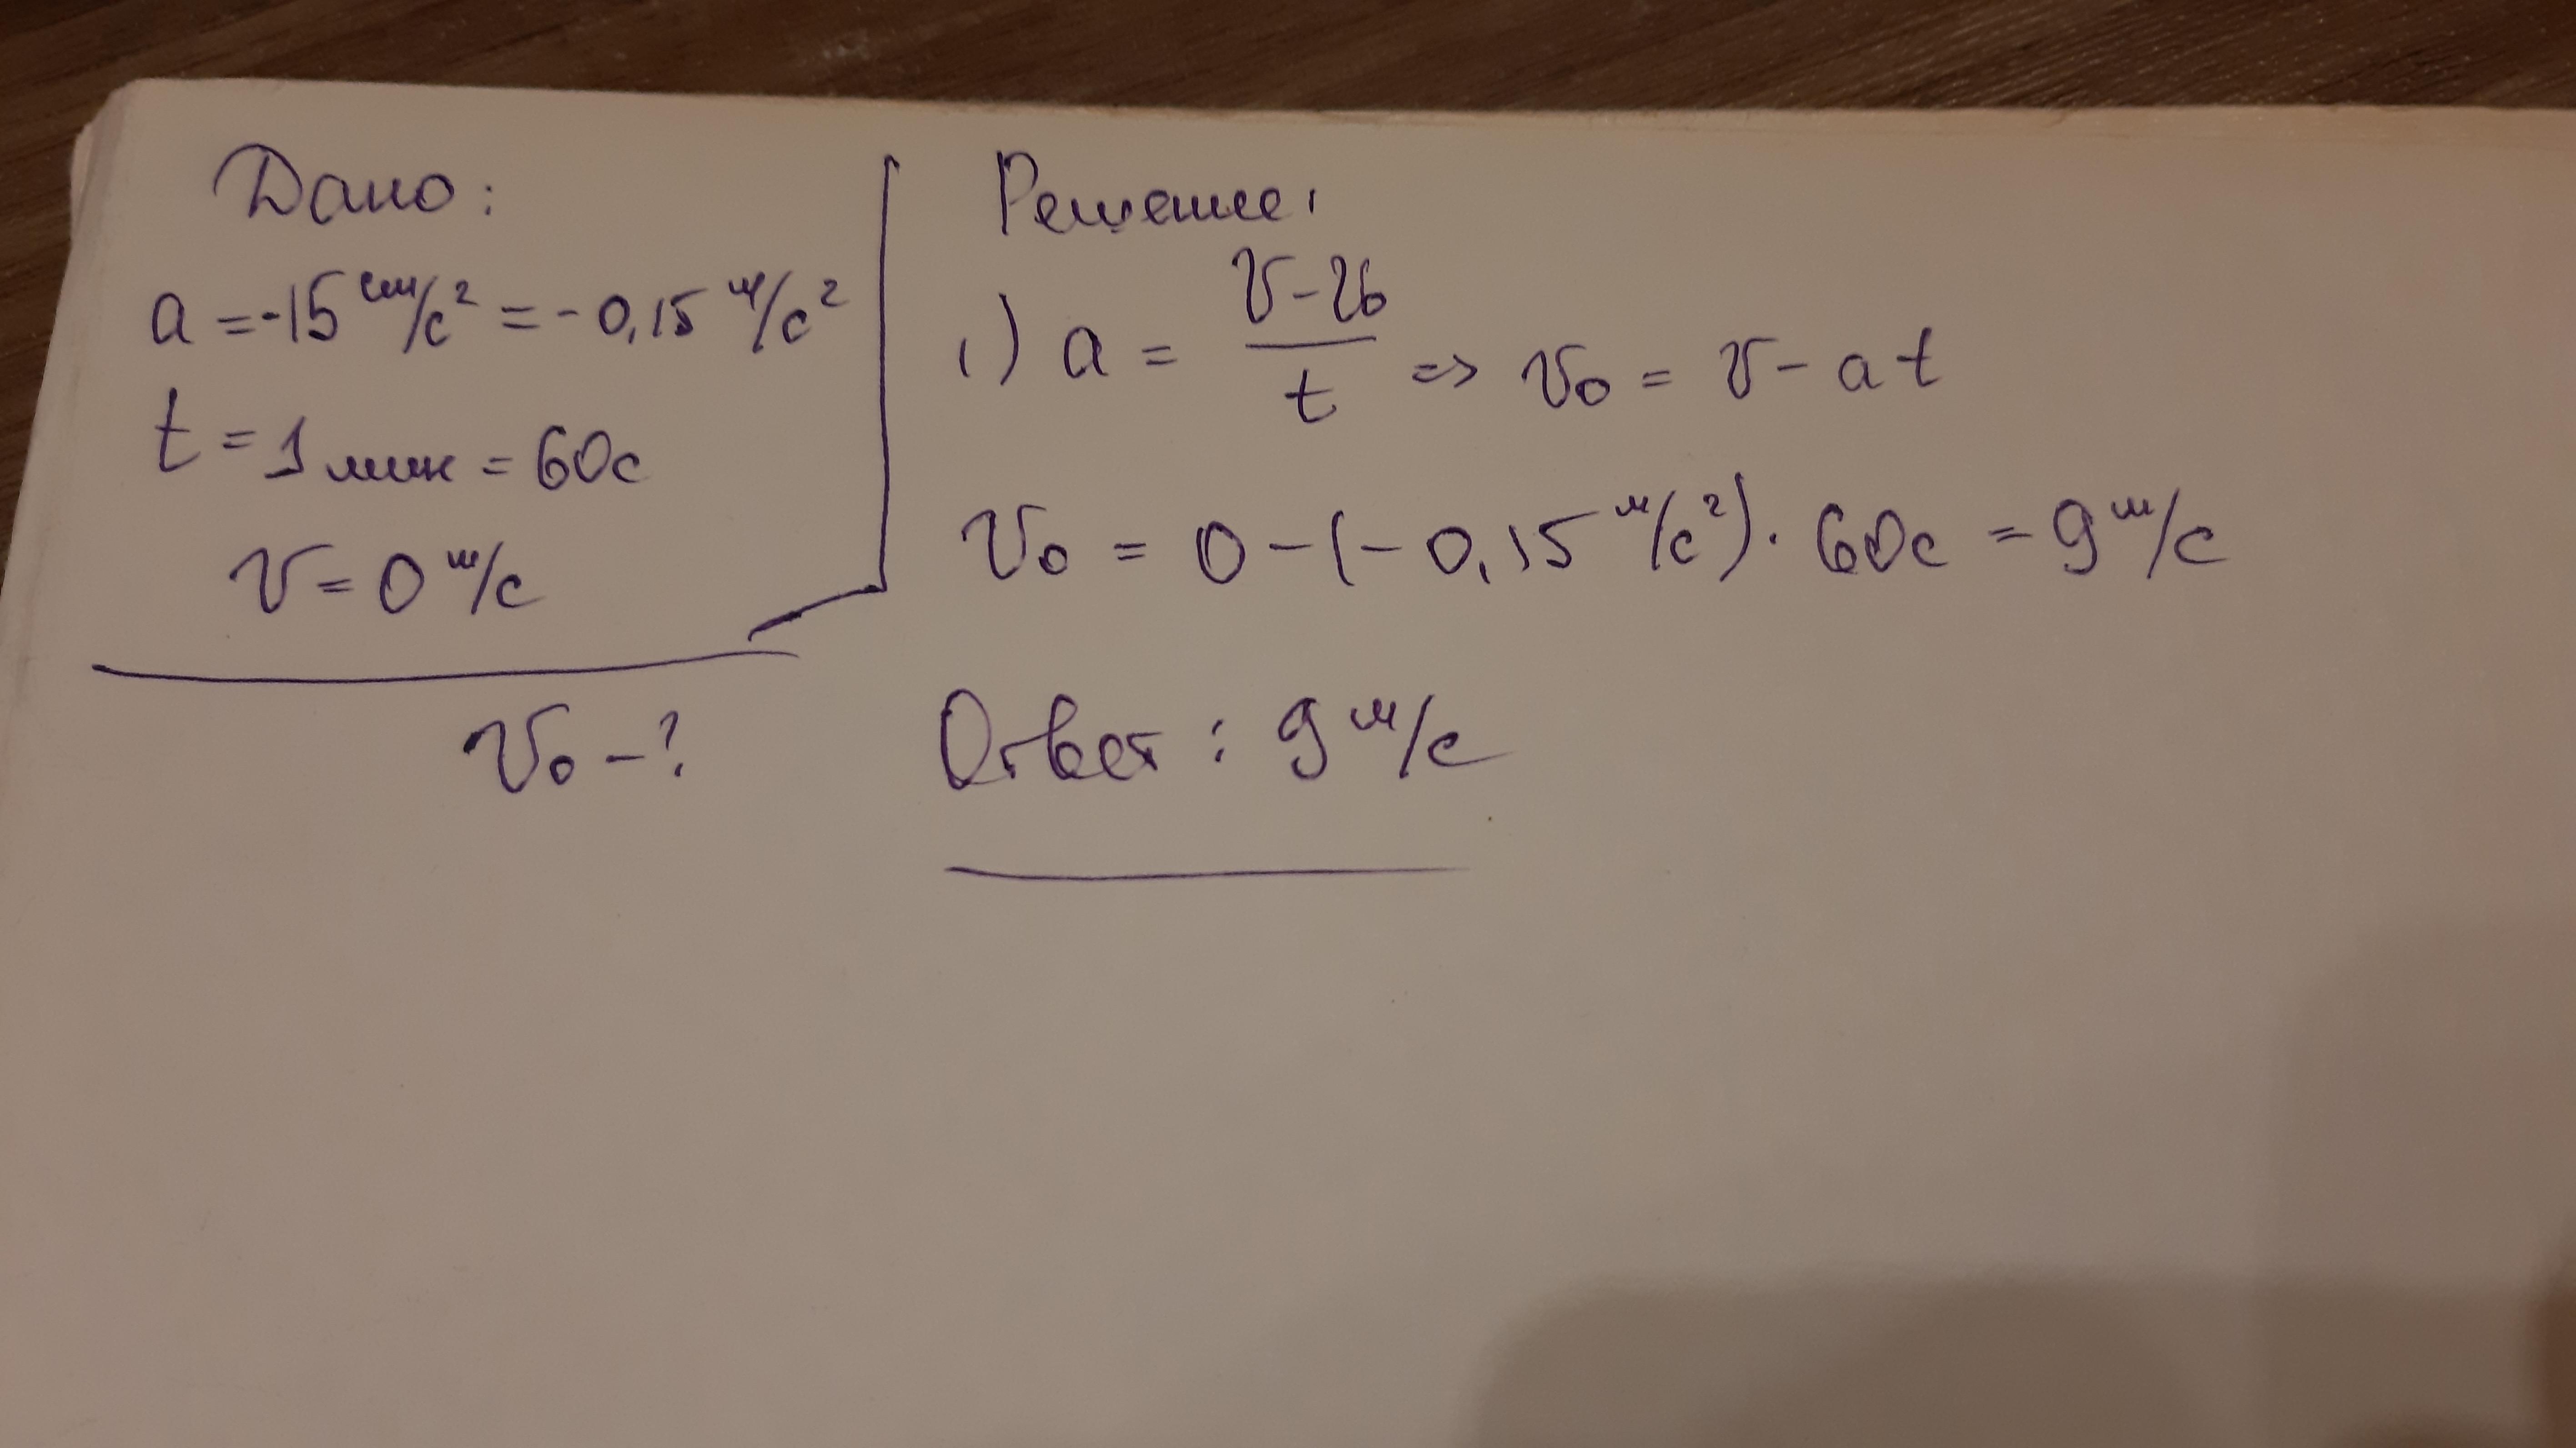 Дано:
a = -15 см/с² = - 0,15 м/с²
t = 1 мин = 60с
V = 0 м/с
V₀ - ?
Решение:
1) a = (V - V₀)/t => V₀ = V - at
V₀ = 0 - (- 0,15 м/с²) · 60с = 9 м/с
Ответ: 9 м/с